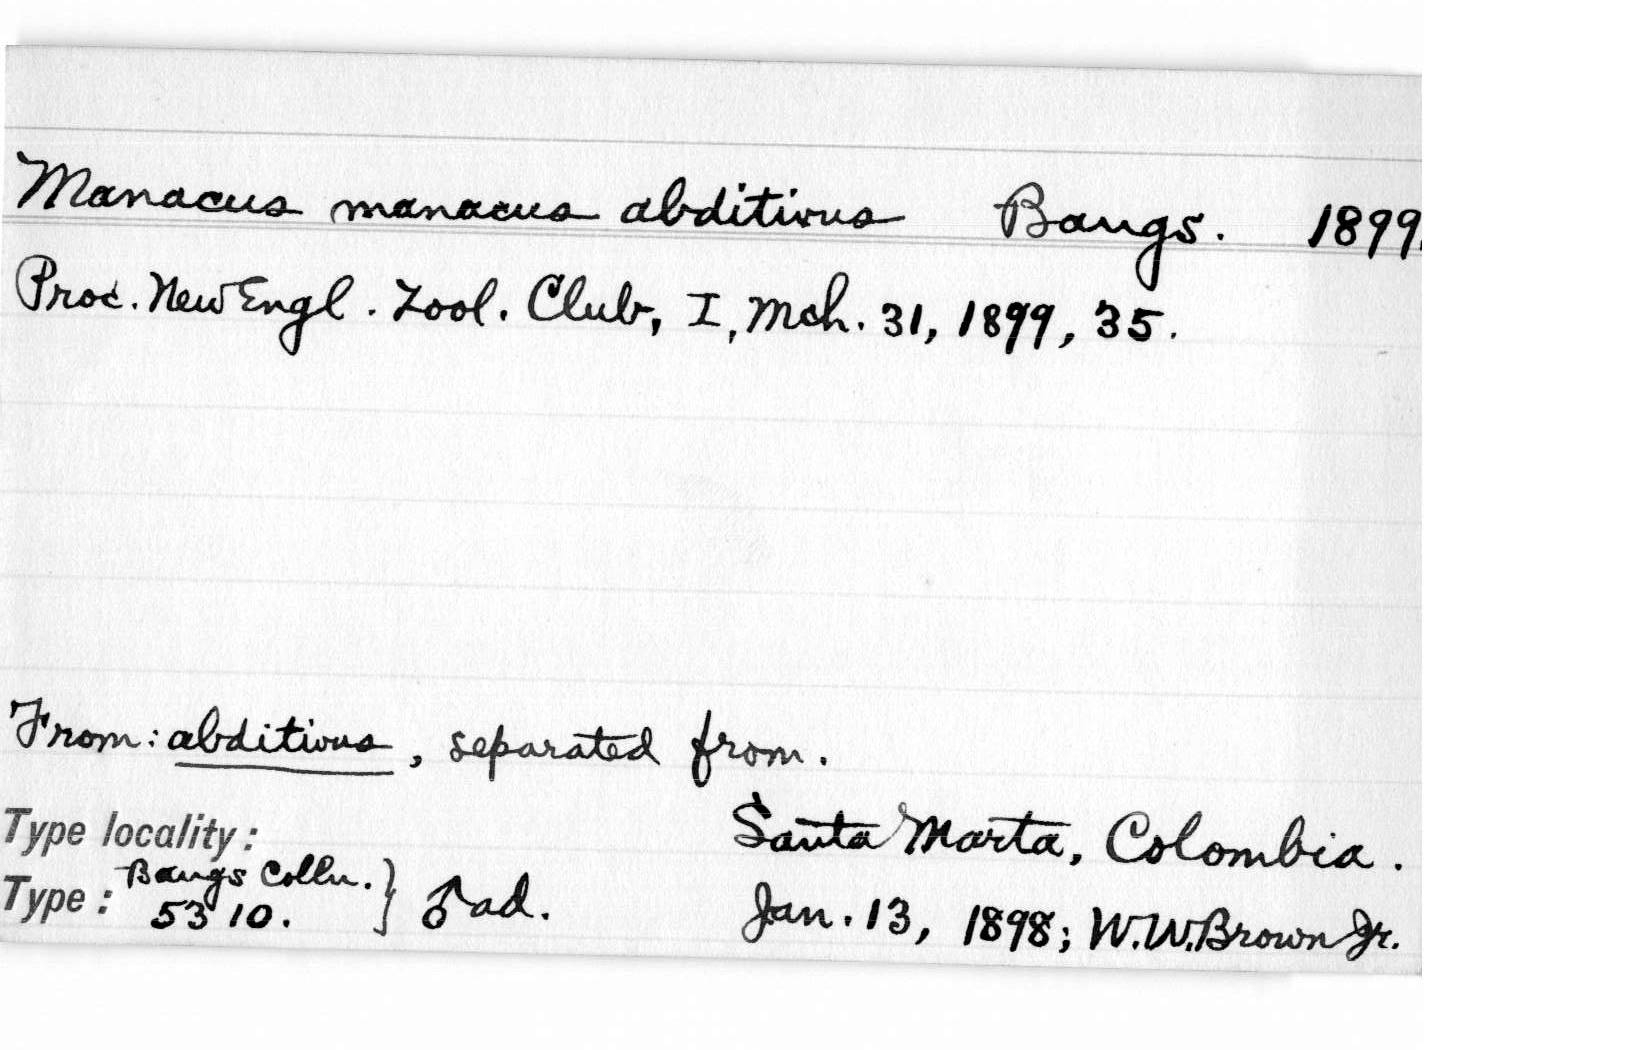 Manacus manacus abditivus Bangs. 1899.
Proc. New Engl. Zool. Club, I, Mch. 31, 1899, 35.
From: abditivus, separated from.
Type locality: Santa Marta, Colombia.
Type: Bangs Colln. 5310. } ♂ ad. Jan. 13, 1898; W.W. Brown Jr.